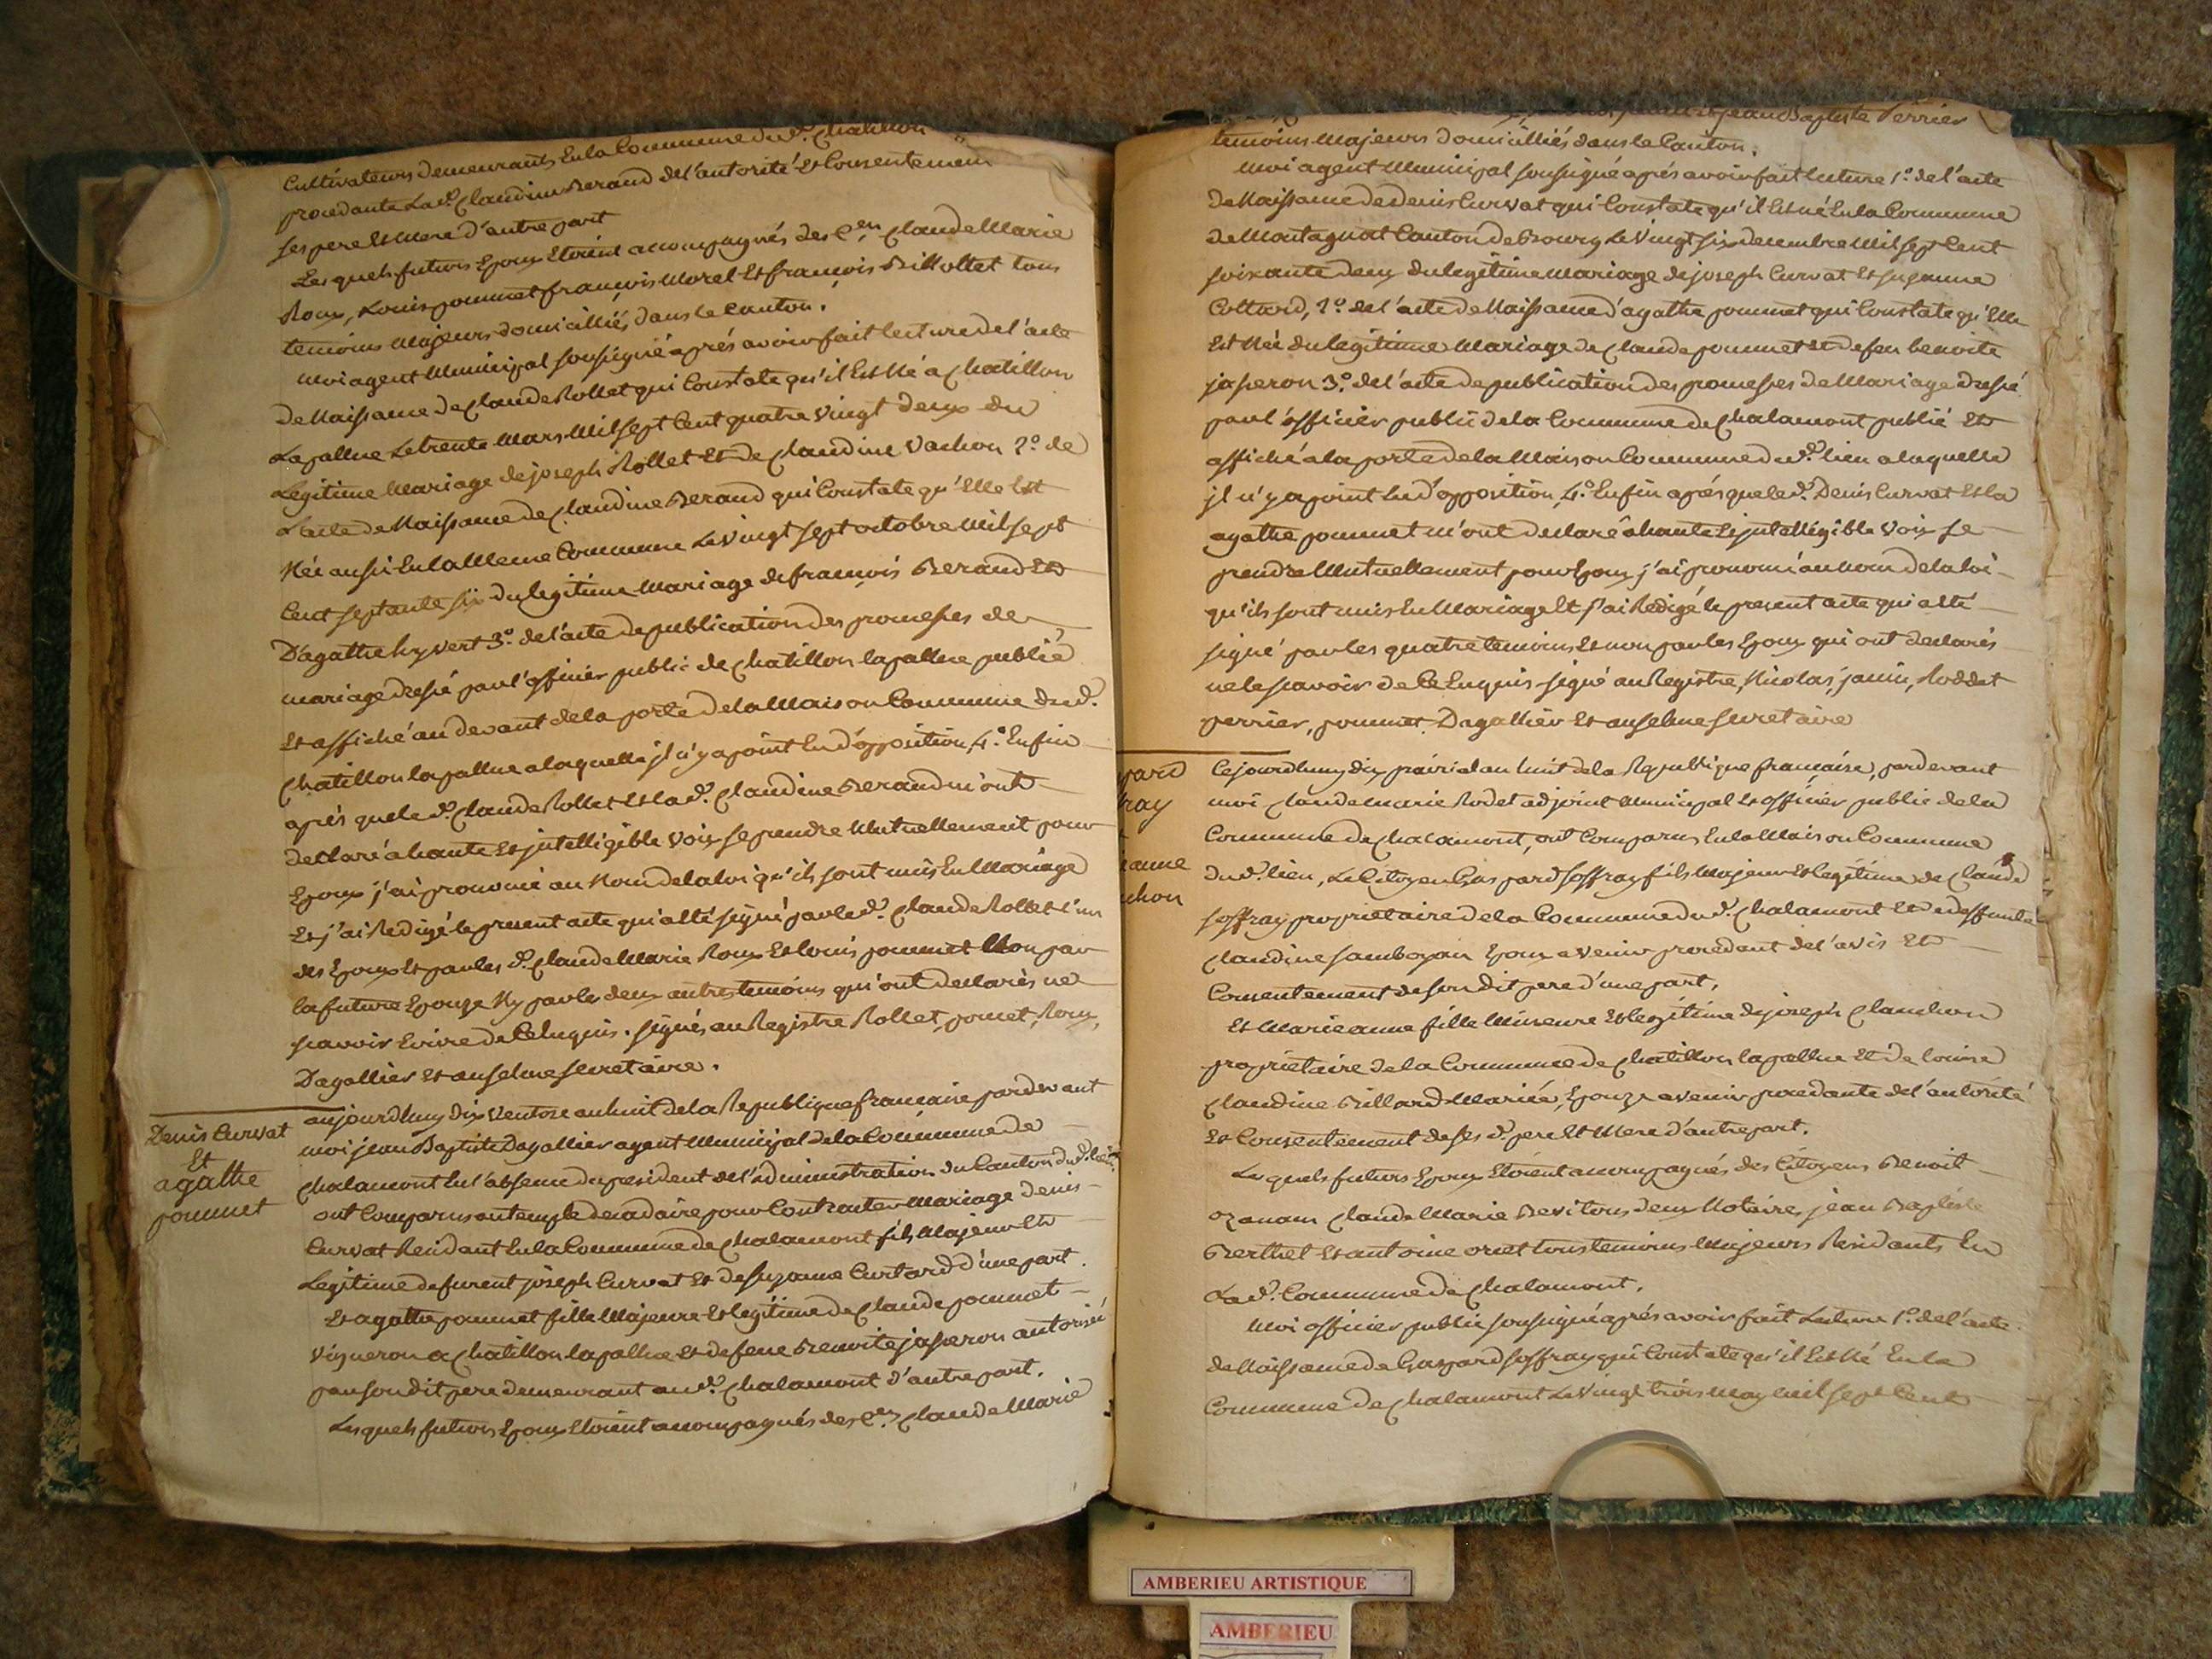 Cultivateurs demeurants En la Commune dud. Chatillon
procedante Lad. Claudine Berand de l'autorité Et Consentement
ses pere Et Mere d'autre part
Les quels futurs Epoux Etoient accompagnés des Cen Claude Marie
Roux, Louis pommet françois Morel Et françois Billottet tous
temoins Majeurs domicilliés dans le Canton.
Moi agent Municipal soussigné aprés avoir fait lecture de l'acte
de Naissance de Claude Rollet qui Constate qu'il Est Né a Chatillon
Lapallue Le trente Mars Mil sept Cent quatre vingt deux du
Legitime Mariage de joseph Rollet Et de Claudine Vachon 2° de
L'acte de Naissance de Claudine Berand qui Constate qu'Elle Est
Née aussi En la Meme Commune Le Vingt sept octobre Mil sept
Cent septante six du legitime Mariage de françois Berand Et
D'agathe hyvert 3° de l'acte de publication des promesses de
mariage dressé par l'officier public de Chatillon lapallue publié
Et affiché au devant de la porte de la Maison Commune dud.
Chatillon lapallue a laquelle jl n'y a point Eu d'opposition, 4° Enfin
aprés que led. Claude Rollet Et lad. Claudine Berand m'ont
declaré a haute Et jntelligible Voix se prendre Mutuellement pour
Epoux j'ai prononcé au Nom de la loi qu'ils sont unis En Mariage
Et j'ai Redigé le present acte qui a Eté signé par led. Claude Rollet l'un
des Epoux Et par les d. Claude Marie Roux Et Louis pommet Non par
la future Epouze Ny par les deux autres temoins qui ont declarés ne
scavoir Ecrire de Ce Enquis. signés au Registre Rollet, pomet, Roux,
Dagallier Et anselme secretaire.
Denis Curvat
Et
agathe
pommet
aujourdhuy dix Ventose an huit de la Republique francaise pardevant
moi jean Baptiste Dagallier agent Municipal de la Commune de
Chalamont En l'absence du president de l'administration du Canton dud. lieu
ont Comparus au temple decadaire pour Contracter Mariage denis
Curvat Residant En la Commune de Chalamont fils Majeur Et
Legitime de furent joseph Curvat Et de Suzanne Curtard d'une part.
Et agathe pommet fille Majeure Et legitime de Claude pommet
Vigneron a Chatillon lapallue Et de feue Benoite jasseron autorisée
par son dit pere demeurant aud. Chalamont d'autre part.
Les quels futurs Epoux Etoient accompagnés des Cen Claude Marie
jean Baptiste Perrier
temoins Majeurs domicilliés dans le Canton.
Moi agent Municipal soussigné aprés avoir fait lecture 1° de l'acte
de Naissance de denis Curvat qui Constate qu'il Est né En la Commune
de Montagnat Canton de Bourg Le Vingt six decembre Mil sept Cent
soixante deux du legitime Mariage de joseph Curvat Et suzanne
Cottard, 2° de l'acte de Naissance d'agathe pommet qui Constate qu'Elle
Est Née du legitime Mariage de Claude pommet Et de feu benoite
jasseron 3° de l'acte de publication des promesses de Mariage dressé
par l'officier public de la Commune de Chalamont publié Et
affiché a la porte de la Maison Commune dud. lieu a laquelle
jl n'y a point Eu d'opposition, 4° Enfin aprés que led. Denis Curvat Et la
agathe pommet m'ont declaré a haute Et jntelligible Voix se
prendre Mutuellement pour Epoux j'ai prononcé au Nom de la loi
qu'ils sont unis En Mariage Et j'ai Redigé le present acte qui a Eté
signé par les quatre temoins Et non par les Epoux qui ont declarés
ne le scavoir de Ce Enquis signé au Registre, Nicolas, janin, Roddet
perrier, pommet, Dagallier Et anselme secretaire
pard
fray
anne
chon
Cejourdhuy dix prairial an huit de la Republique francaise, pardevant
moi Claude Marie Rodet adjoint Municipal Et officier public de la
Commune de Chalamont, ont Comparus En la Maison Commune
dud. lieu, Le Citoyen Gaspard soffray fils Majeur Et legitime de Claude
soffray proprietaire de la Commune dud. Chalamont Et de deffunte
Claudine Samboyan Epoux a Venir procedant de l'avis Et
Consentement de son dit pere d'une part,
Et Marie anne fille Mineure Et legitime de joseph Clanchon
proprietaire de la Commune de Chatillon lapallue Et de louise
Claudine Billard Mariée, Epouze a Venir procedante de l'autorité
Et Consentement de ses d. pere Et Mere d'autre part.
Les quels futurs Epoux Etoient accompagnés des Citoyens Benoit
ozanam Claude Marie Bevi tous deux Notaires, jean Baptiste
Berthet Et antoine oriet tous temoins Majeurs Residants En
Lad. Commune de Chalamont.
Moi officier public soussigné aprés avoir fait Lecture 1° de l'acte
de Naissance de Gaspard soffray qui Constate qu'il Est Né En la
Commune de Chalamont Le Vingt trois May Mil sept Cent
AMBERIEU ARTISTIQUE
AMBERIEU